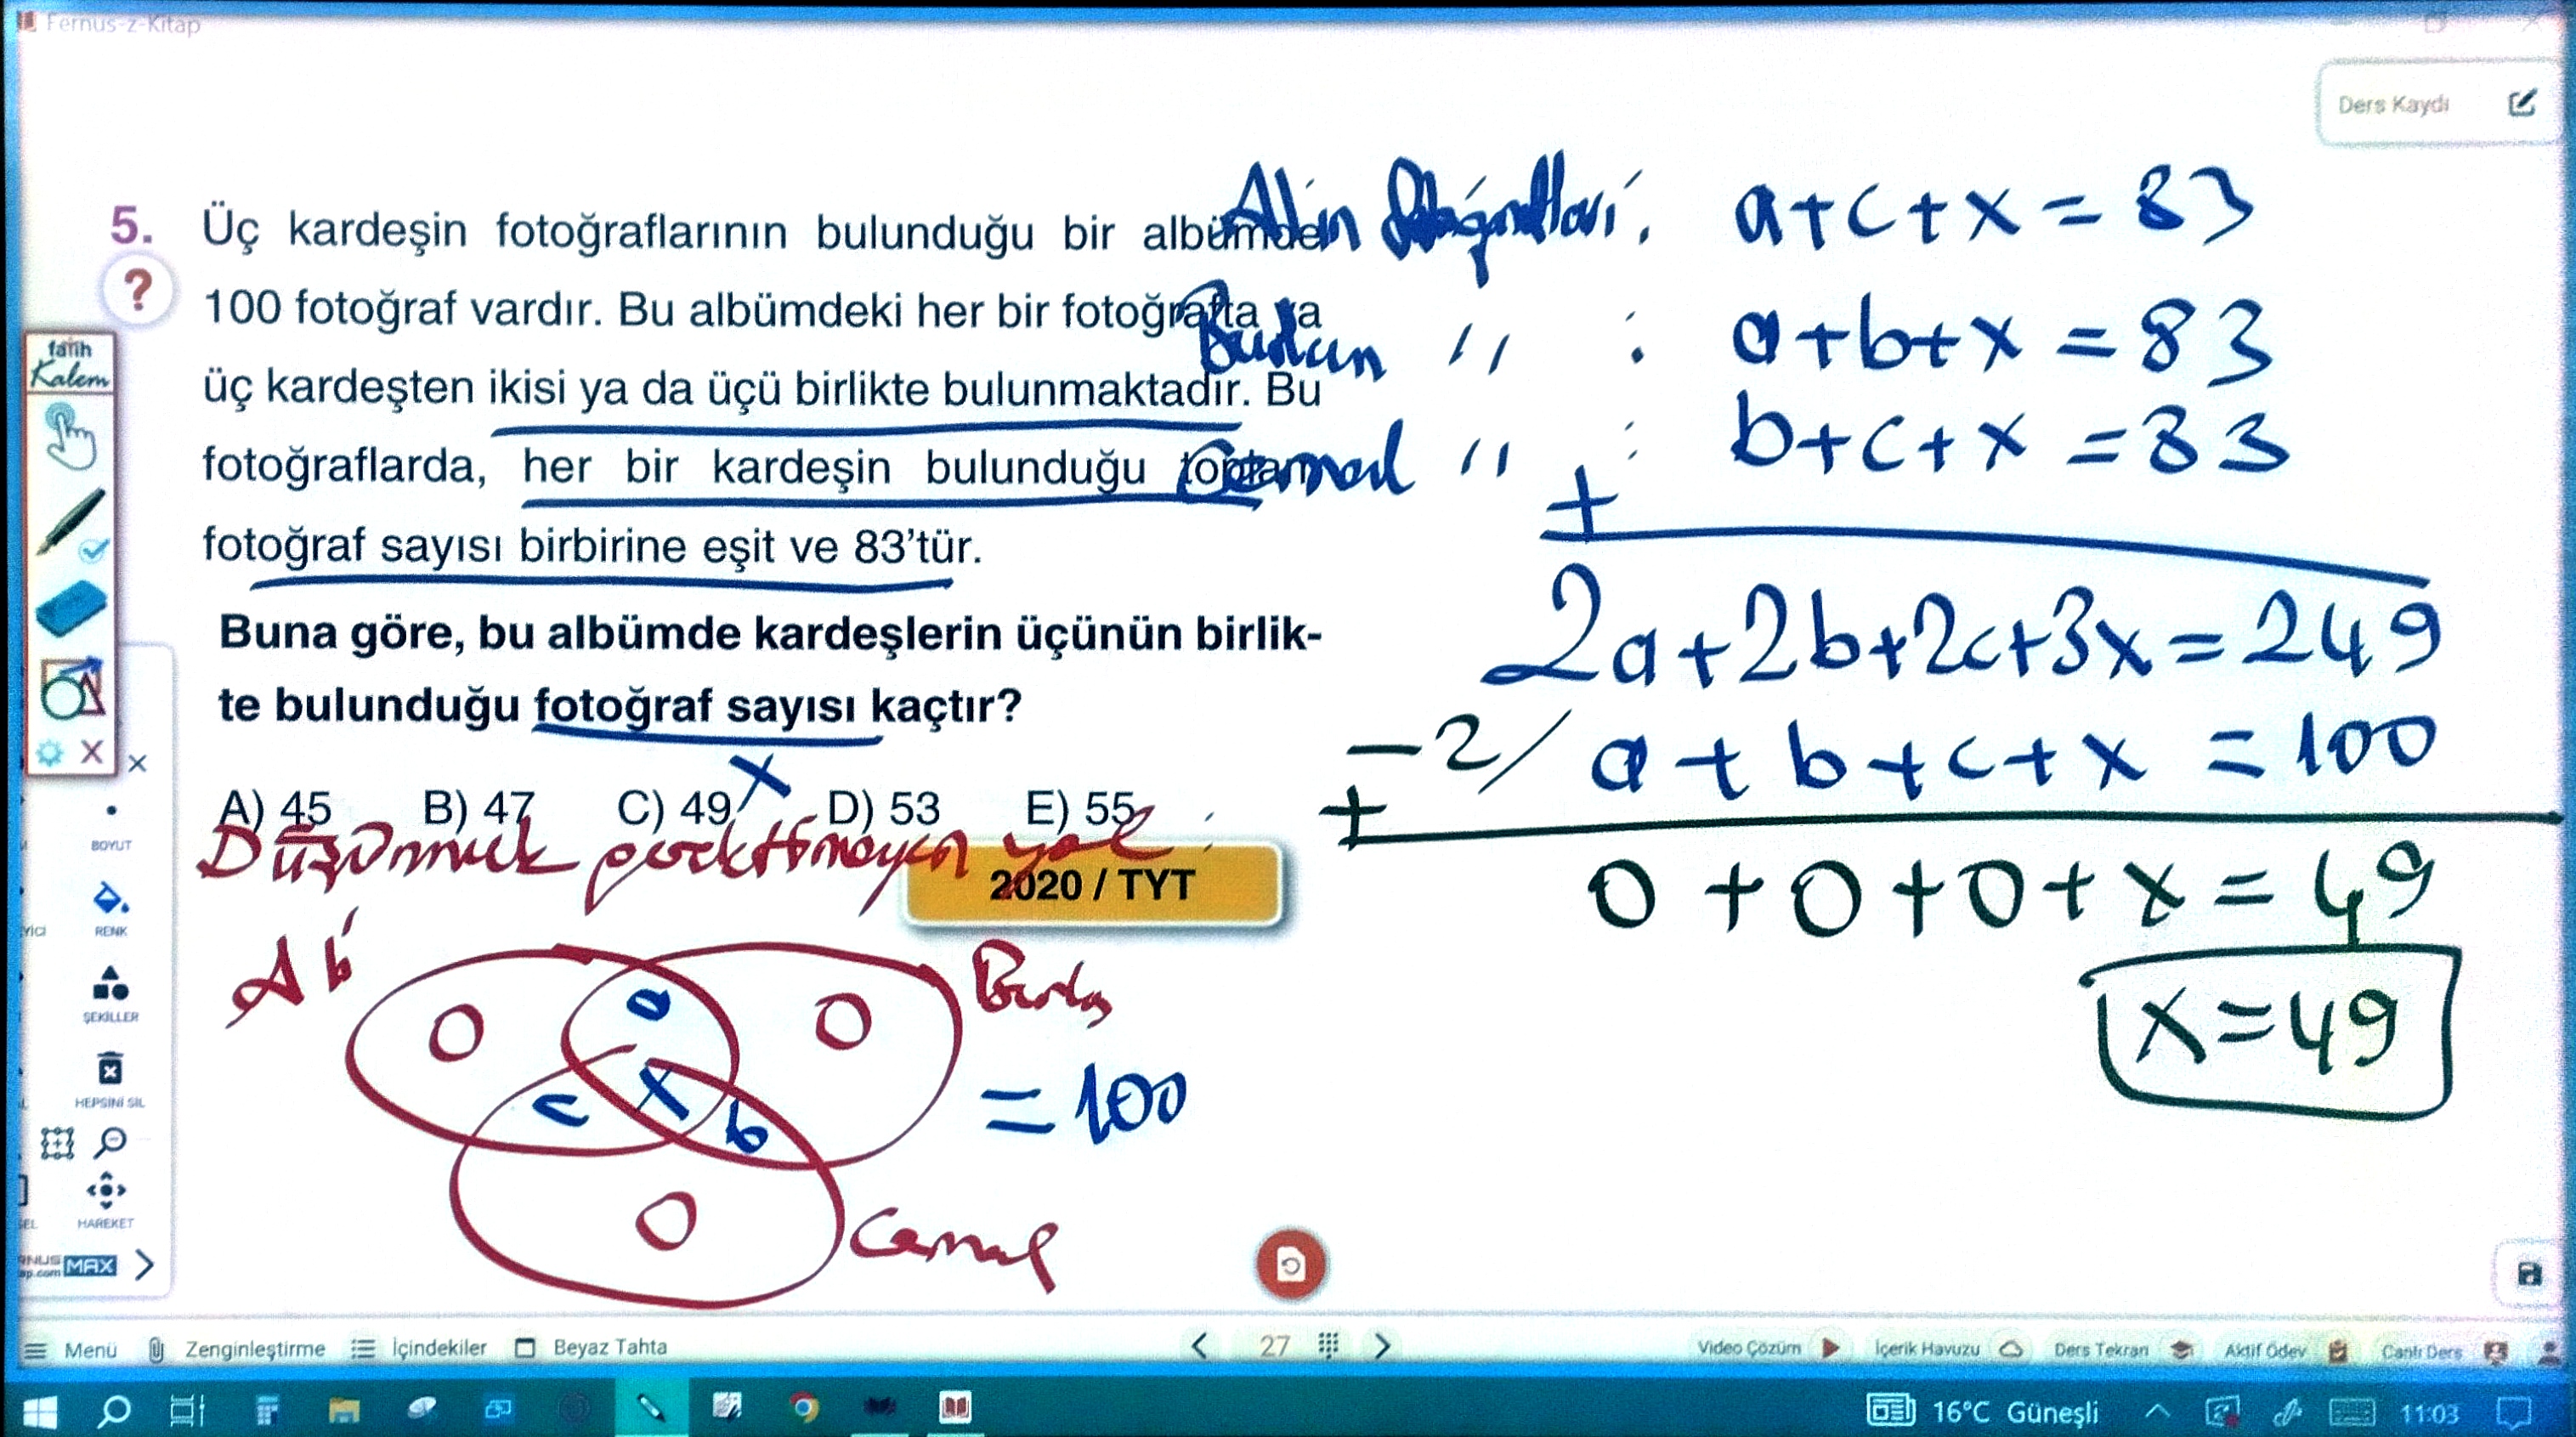 Fernus-z-Kitap
Ders Kaydı
5. Üç kardeşin fotoğraflarının bulunduğu bir albümde
100 fotoğraf vardır. Bu albümdeki her bir fotoğrafta ya
üç kardeşten ikisi ya da üçü birlikte bulunmaktadır. Bu
fotoğraflarda, her bir kardeşin bulunduğu toplam
fotoğraf sayısı birbirine eşit ve 83'tür.
Buna göre, bu albümde kardeşlerin üçünün birlik-
te bulunduğu fotoğraf sayısı kaçtır?
x
A) 45 B) 47 C) 49 D) 53 E) 55
2020 / TYT
a+c+x=83
" : a+b+x=83
Cemal " : b+c+x=83
+
2a+2b+2c+3x=249
-2/ a+b+c+x=100
+
0+0+0+x=49
x=49
Düşünmek gerektirmeyen yol:
O a O
c x b
=100
O
Cemal
fatih
Kalem
BOYUT
RENK
ŞEKİLLER
HEPSİNİ SİL
HAREKET
MAX
Menü Zenginleştirme İçindekiler Beyaz Tahta 27 Video Çözüm İçerik Havuzu Ders Tekrarı Aktif Ödev Canlı Ders
16°C Güneşli 11:03